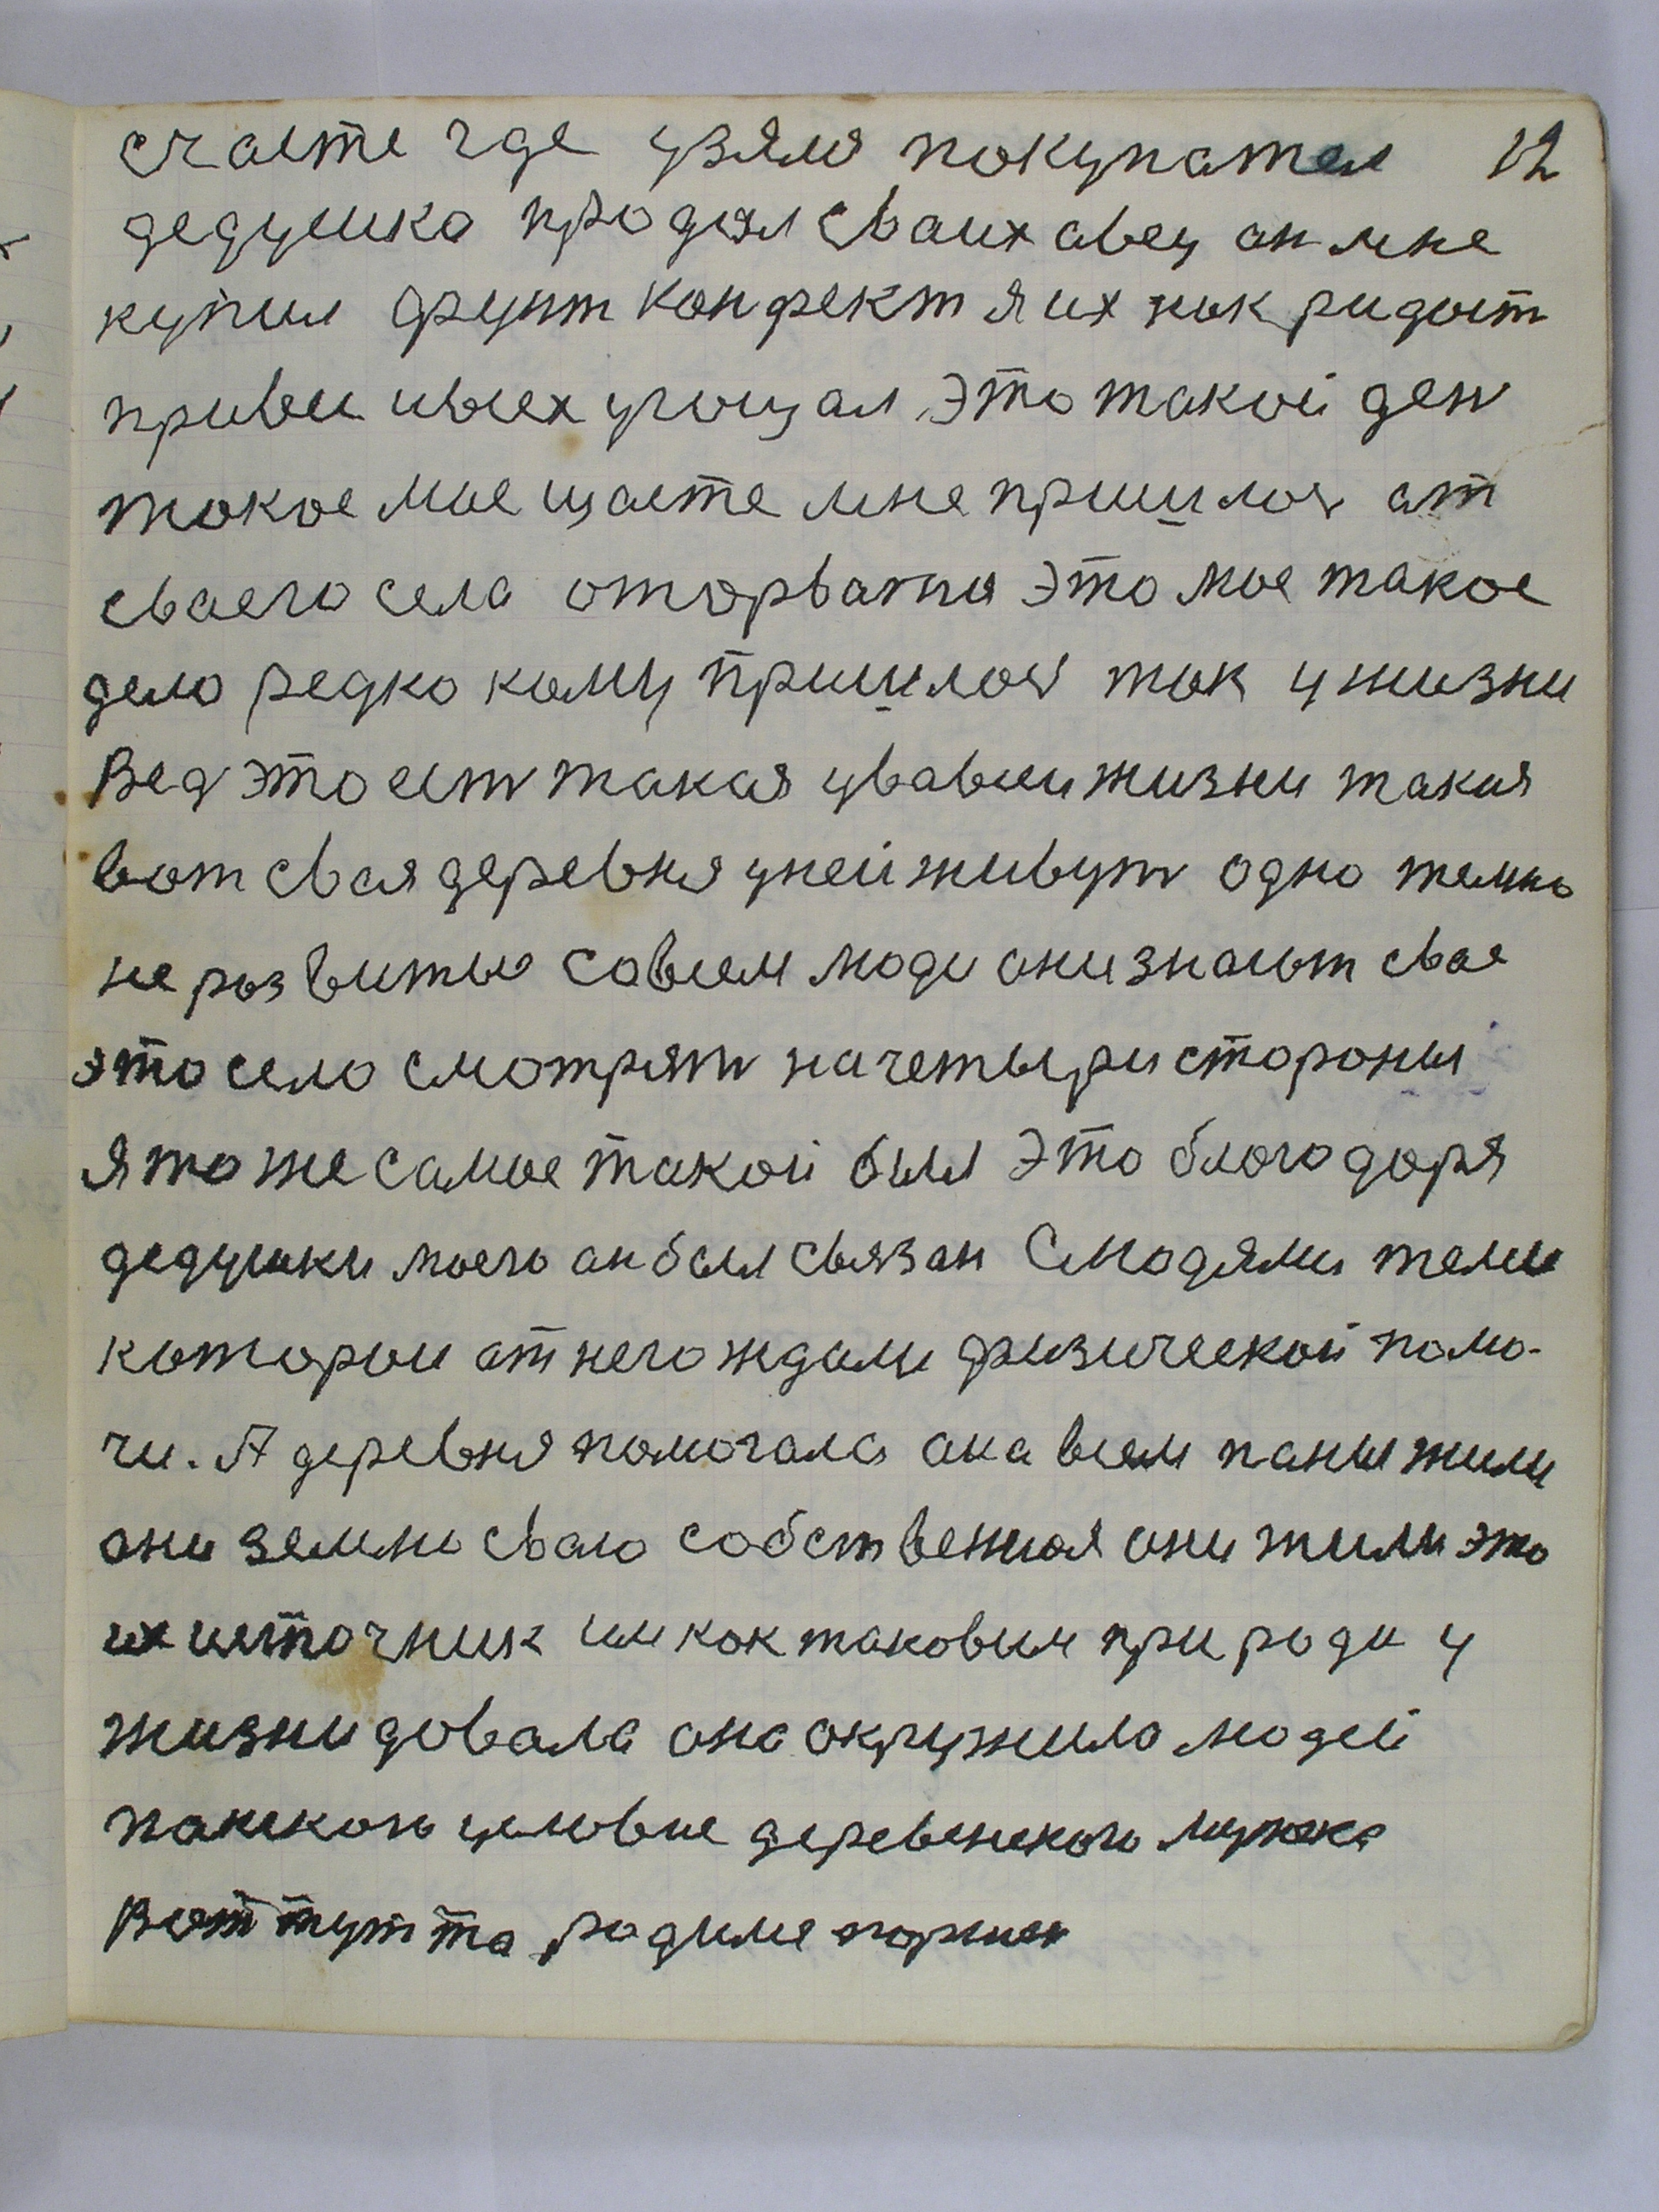 счасте где узяля покупател 12
дедушка продал сваих авец ан мне
купил фунт конфект я их как радост
привез и всех угощал это такой ден
токое мое щасте мне пришлос ат
сваего села оторватся это мое такое
дело редко каму пришлос так у жизни
Вед это ест такая у вавсеи жизни такая
вот свая деревня у ней живут одно темно
не развитые совсем люди они знают свае
это село смотрят на четыри стороны
я то же самое такой был Это благо доря
дедушки моего ан был связан С людями теми
которои ат него ждали физической помо-
чи. А деревня помогала ана всем паны жили
они землю сваю собственная они жили это
их источник им как таковым природи у
жизни довала она окружила людей
панскою условие деревенского мужика
Вот тут та родиме